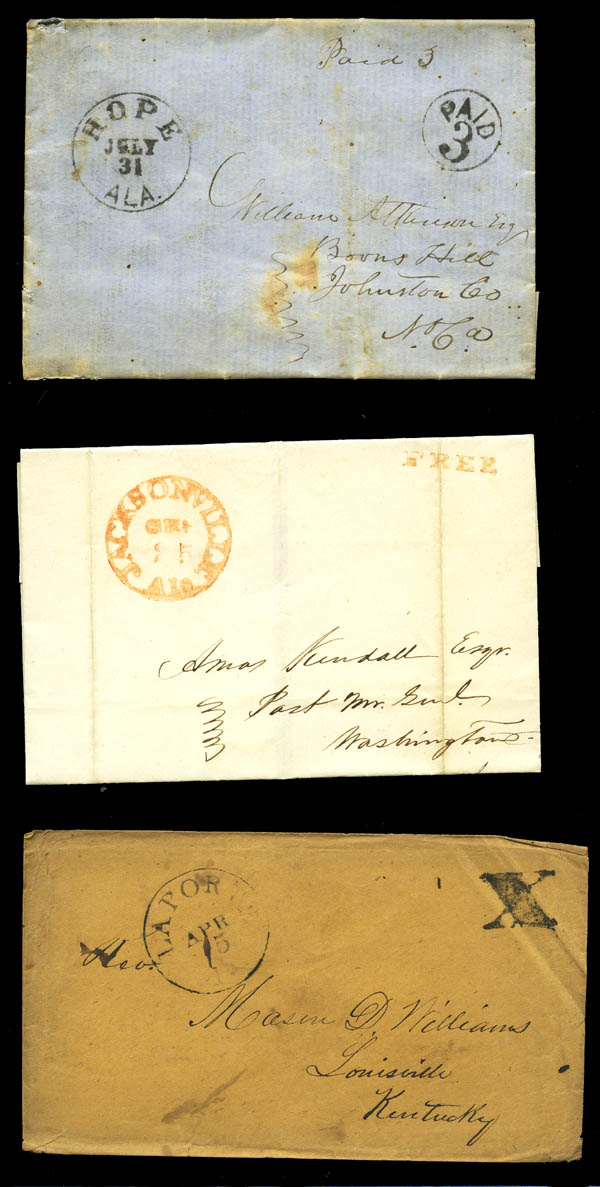 Paid 3
HOPE
JULY
31
ALA.
PAID
3
William Atkinson Esq
Boons Hill
Johnston Co
No Ca
FREE
JACKSONVILLE
Ala
Amos Kendall Esqr.
Post Mr. Genl.
Washington
X
LAPOR
APR
15
Rev.
Mason D. Williams
Louisville
Kentucky